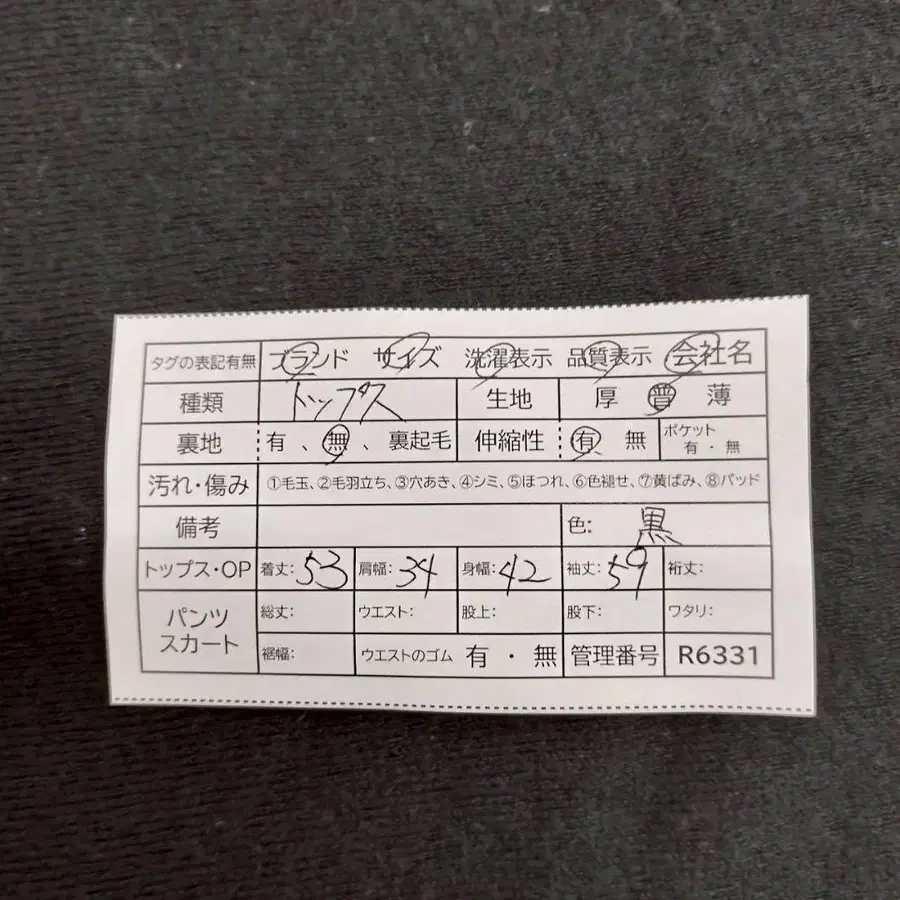 タグの表記有無 ブランド サイズ 洗濯表示 品質表示 会社名
種類 トップス 生地 厚 普 薄
裏地 有 、無 、裏起毛 伸縮性 有、無 ポケット 有・無
汚れ・傷み ①毛玉、②毛羽立ち、③穴あき、④シミ、⑤ほつれ、⑥色褪せ、⑦黄ばみ、⑧パッド
備考 色: 黒
トップス・OP 着丈: 53 肩幅: 34 身幅: 42 袖丈: 59 裄丈:
パンツ スカート 総丈: ウエスト: 股上: 股下: ワタリ:
裾幅: ウエストのゴム 有 ・ 無 管理番号 R6331